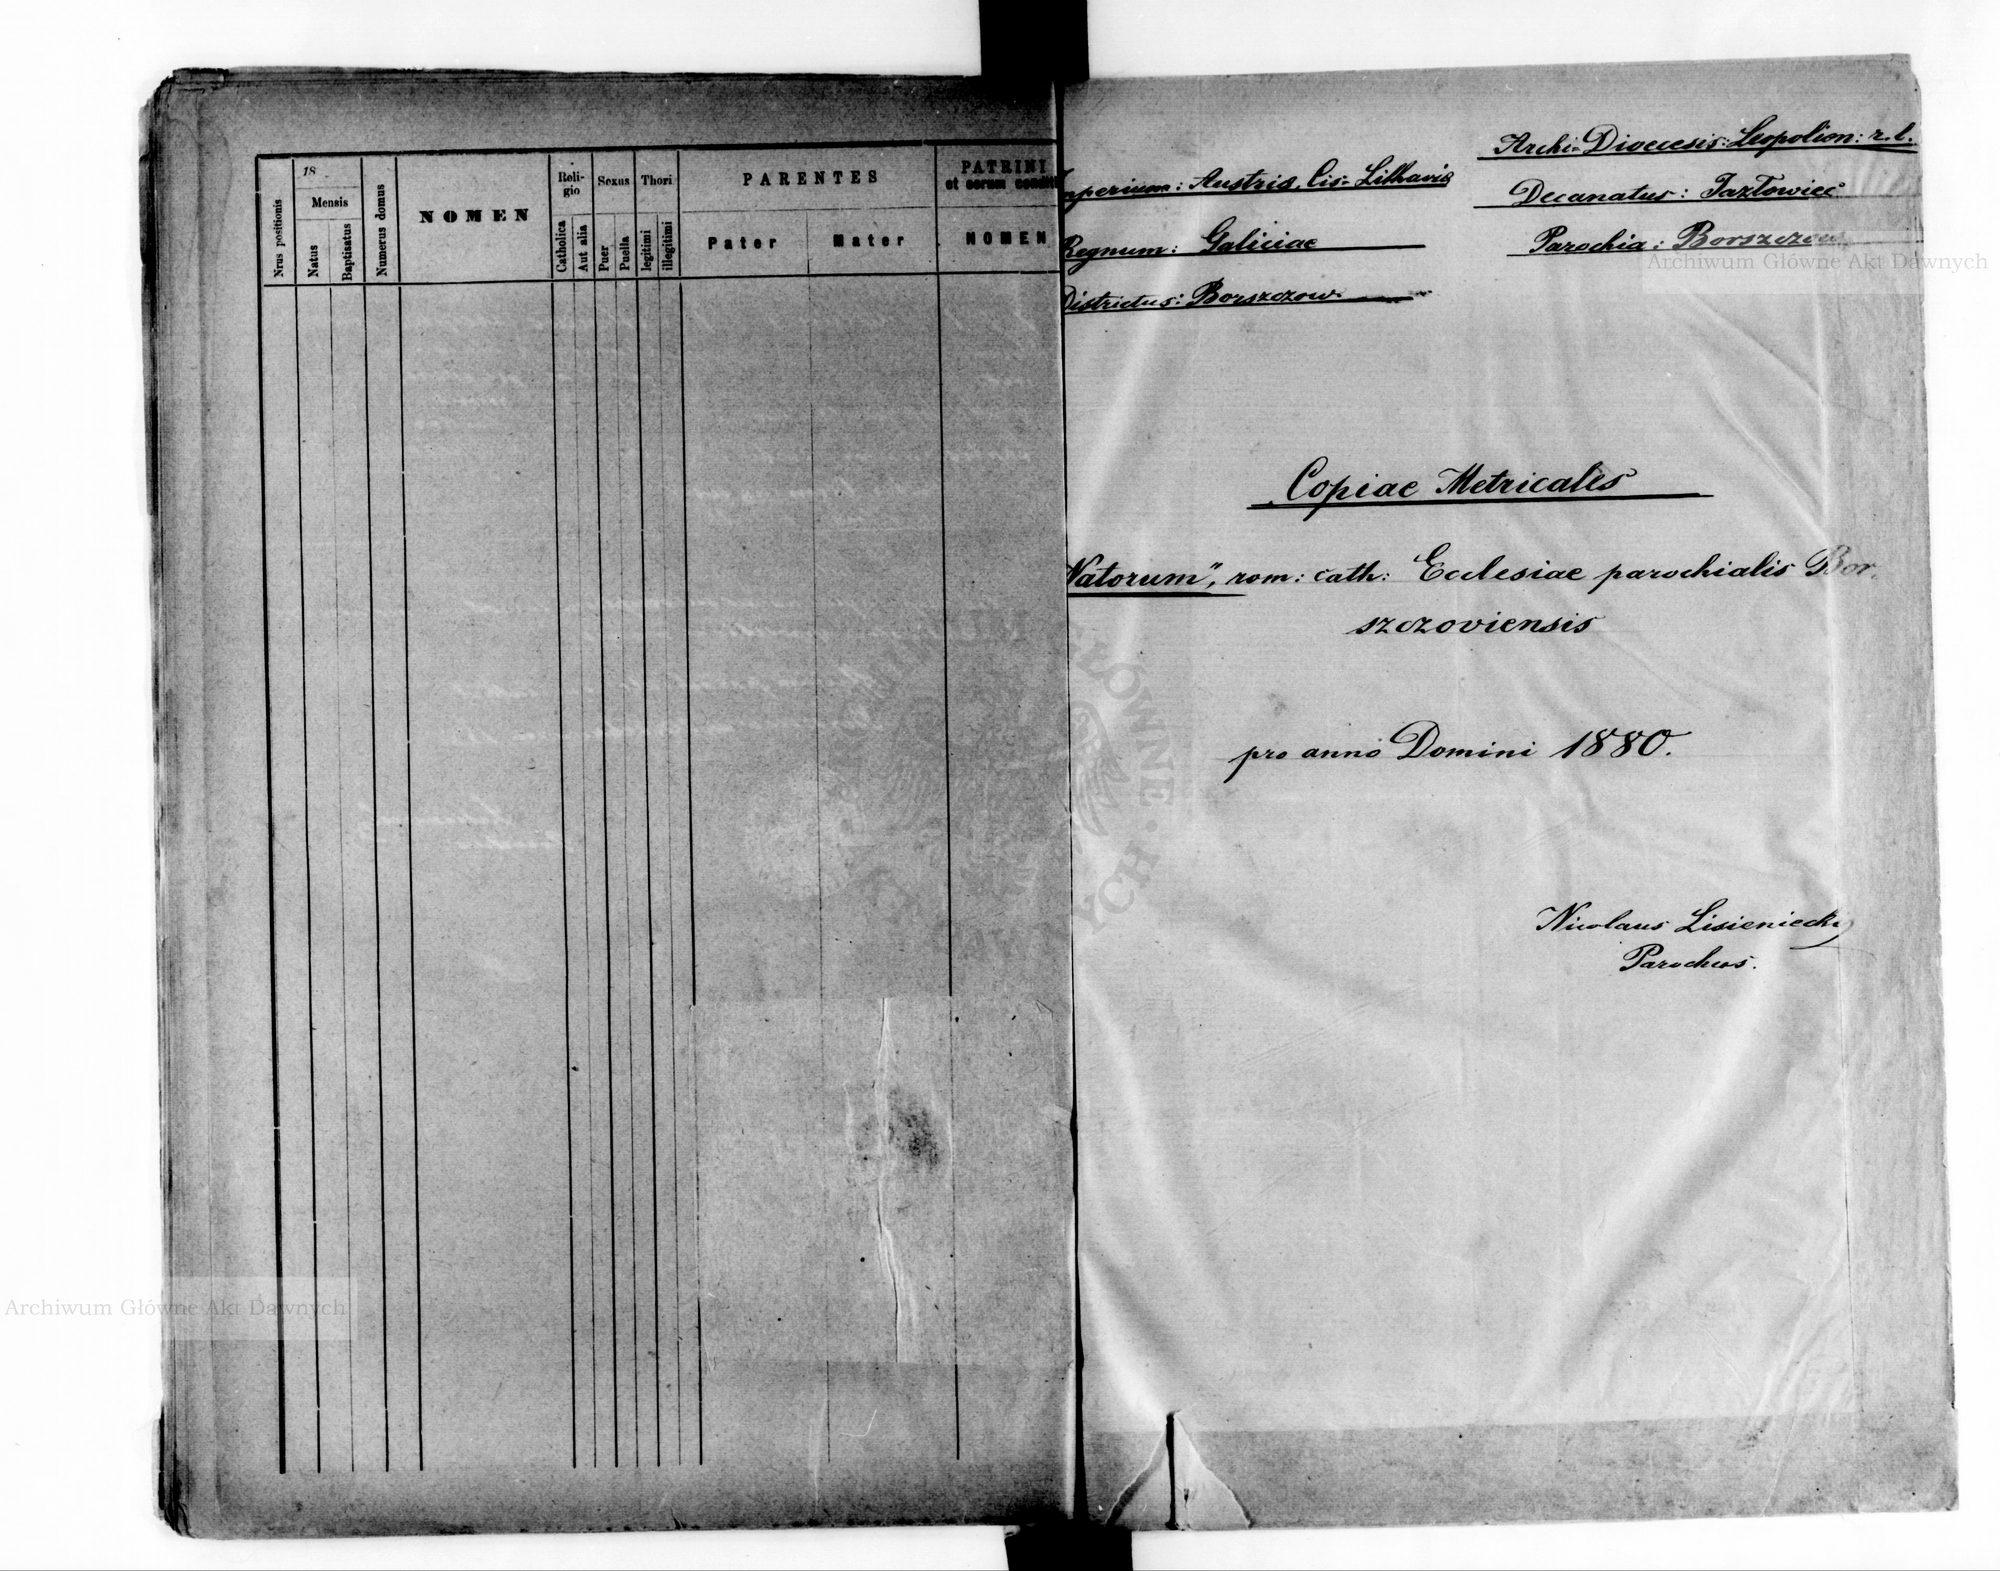 18
Mensis
Nrus positionis
Natus
Baptisatus
Numerus domus
NOMEN
Reli-
gio
Catholica
Aut alia
Sexus
Puer
Puella
Thori
legitimi
illegitimi
PARENTES
Pater
Mater
PATRINI
et eorum condit
NOMEN
Archi-Dioecesis: Leopolien: r. l.
mperium: Austria, Cis-Lithavia
Decanatus: Jazłowiec
Regnum: Galiciae
Parochia: Borszczow
Districtus: Borszczow
Copiae Metricales
Natorum", rom: cath: Ecclesiae parochialis Bor-
szczoviensis
pro anno Domini 1880.
Nicolaus Lisieniecki
Parochus.
Archiwum Główne Akt Dawnych
Archiwum Główne Akt Dawnych